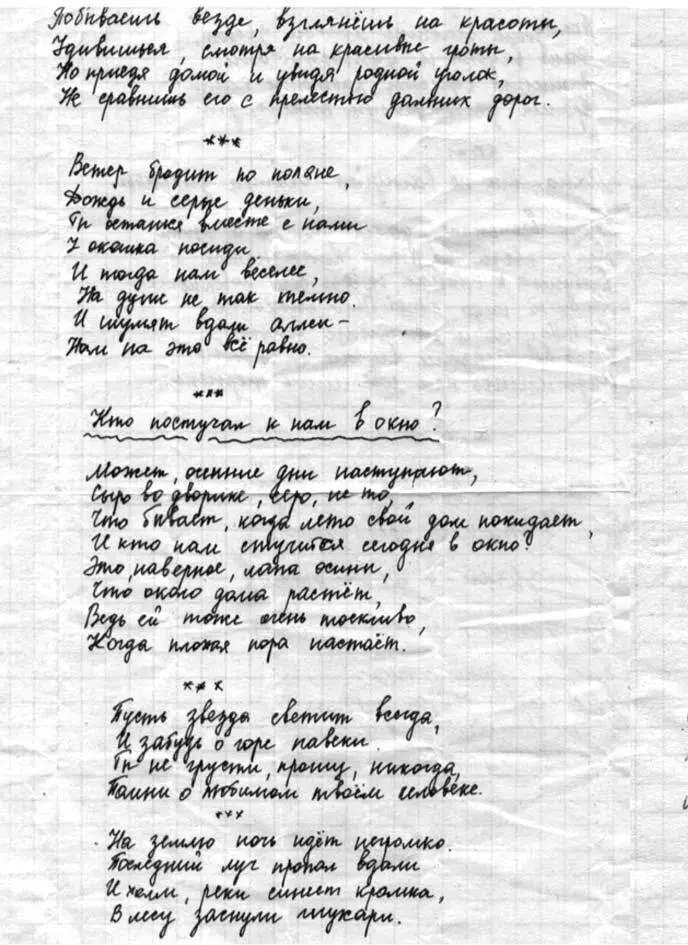 Побываешь везде, взглянёшь на красоты,
Удивишься, смотря на красивые гроты,
Но придя домой и увидя родной уголок,
Не сравнишь его с прелестью дальних дорог.
***
Ветер бродит по поляне,
Дождь и серые деньки,
Ты останься вместе с нами
У окошка посиди
И тогда нам веселее,
На душе не так темно.
И шумят вдали аллеи –
Нам на это всё равно.
***
Кто постучал к нам в окно?
Может, осенние дни наступают,
Сыро во дворике, серо, не то,
Что бывает, когда лето свой дом покидает,
И кто нам стучится сегодня в окно?
Это, наверное, лапа осины,
Что около дома растёт,
Ведь ей тоже очень тоскливо,
Когда плохая пора настаёт.
***
Пусть звезда светит всегда,
И забудь о горе навеки.
Ты не грусти, прошу, никогда,
Помни о любимом твоём человеке.
***
На землю ночь идёт негромко.
Последний луч пропал вдали
И холм, реки синеет кромка,
В лесу заснули глухари.